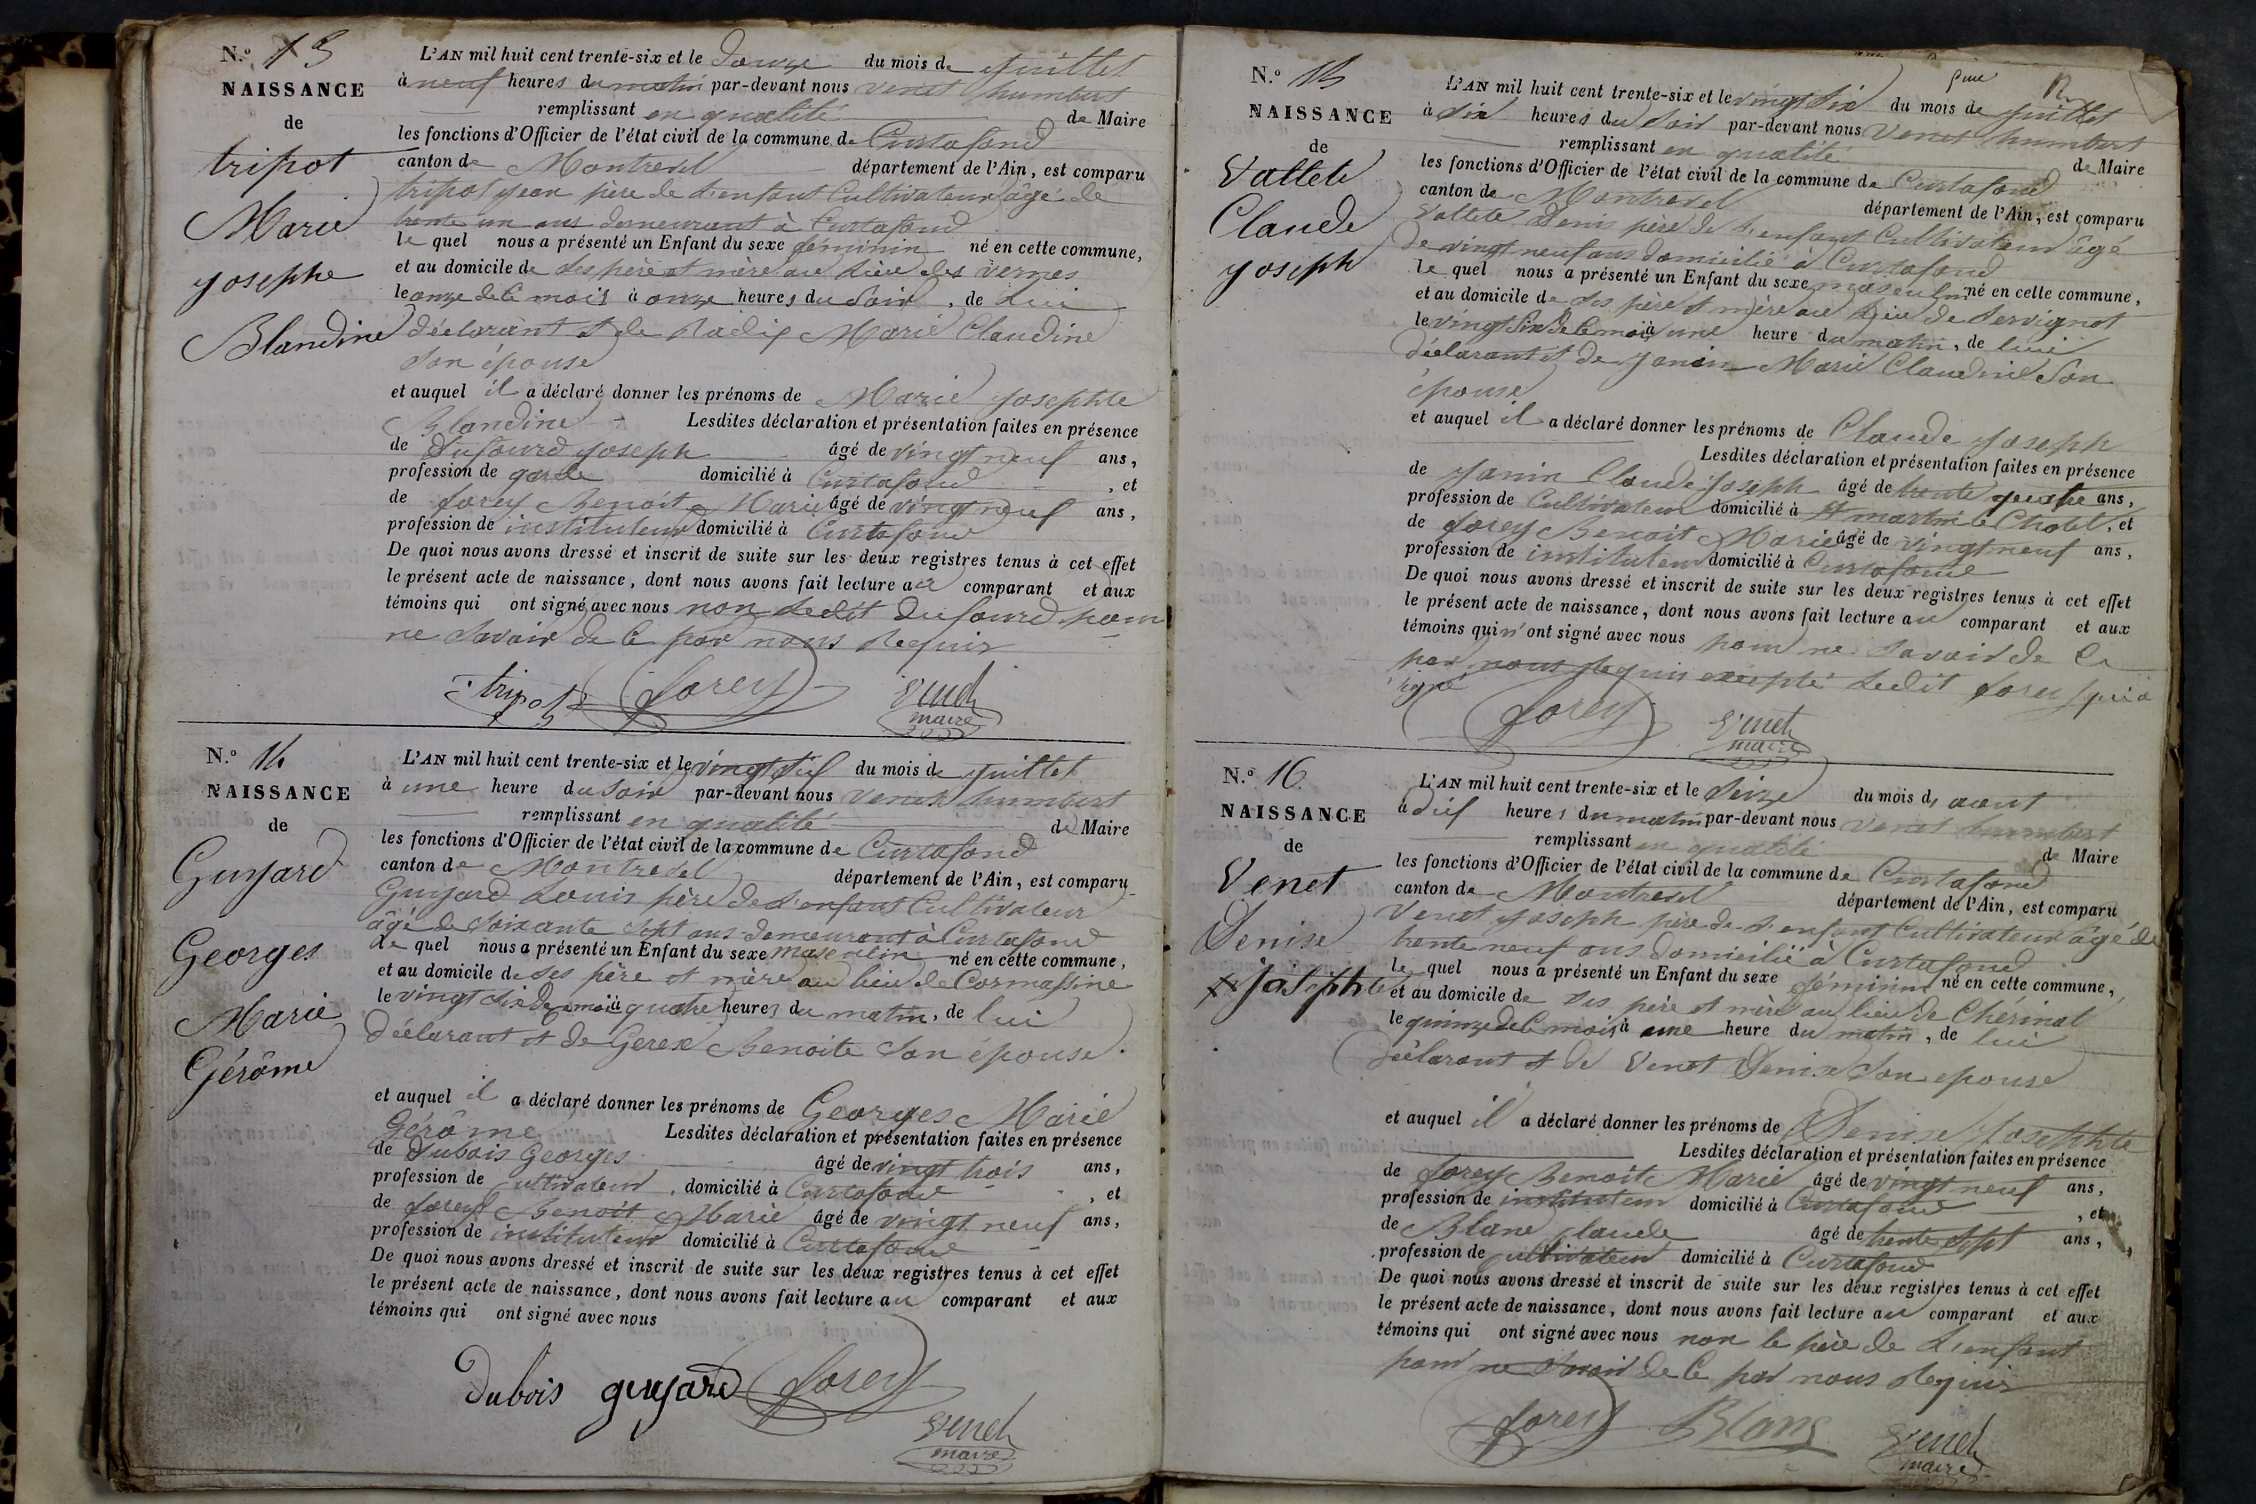 N.º 13
NAISSANCE
de
tripot
Marie
josephe
Blandine
L'AN mil huit cent trente-six et le douze du mois de juillet
à neuf heures du matin par-devant nous venet humbert
remplissant en qualité de Maire
les fonctions d'Officier de l'état civil de la commune de Curtafond
canton de Montrevel département de l'Ain, est comparu
tripot jean père de l'enfant Cultivateur âgé de
trente un ans demeurant à Curtafond
le quel nous a présenté un Enfant du sexe féminin né en cette commune,
et au domicile de ses père et mère au lieu des vernes
le onze de ce mois à onze heures du soir, de lui
déclarant et de Marie Claudine
son épouse
et auquel il a déclaré donner les prénoms de Marie josephte
Blandine Lesdites déclaration et présentation faites en présence
de Dufourd joseph âgé de vingt neuf ans,
profession de garde domicilié à Curtafond, et
de forey Benoit Marie âgé de vingt neuf ans,
profession de instituteur domicilié à Curtafond
De quoi nous avons dressé et inscrit de suite sur les deux registres tenus à cet effet
le présent acte de naissance, dont nous avons fait lecture au comparant et aux
témoins qui ont signé avec nous non ledit Dufourd pour
ne savoir de ce par nous requis
tripot forey Venet
maire
N.º 14
NAISSANCE
de
Guyard
Georges
Marie
Gérôme
L'AN mil huit cent trente-six et le vingt six du mois de juillet
à une heure du soir par-devant nous venet humbert
remplissant en qualité de Maire
les fonctions d'Officier de l'état civil de la commune de Curtafond
canton de Montrevel département de l'Ain, est comparu
Guyard Louis père de l'enfant Cultivateur
âgé de soixante sept ans demeurant à Curtafond
le quel nous a présenté un Enfant du sexe masculin né en cette commune,
et au domicile de ses père et mère au lieu de Cormassine
le vingt six de ce mois à quatre heures du matin, de lui
déclarant et de Gerex Benoite son épouse.
et auquel il a déclaré donner les prénoms de Georges Marie
Gérôme Lesdites déclaration et présentation faites en présence
de Dubois Georges âgé de vingt trois ans,
profession de cultivateur, domicilié à Curtafond, et
de forey Benoit Marie âgé de vingt neuf ans,
profession de instituteur domicilié à Curtafond
De quoi nous avons dressé et inscrit de suite sur les deux registres tenus à cet effet
le présent acte de naissance, dont nous avons fait lecture au comparant et aux
témoins qui ont signé avec nous
Dubois guyard forey
Venet
maire
N.º 15
NAISSANCE
de
Vallete
Claude
joseph
L'AN mil huit cent trente-six et le vingt six du mois de juillet
à six heures du soir par-devant nous Venet humbert
remplissant en qualité de Maire
les fonctions d'Officier de l'état civil de la commune de Curtafond
canton de Montrevel département de l'Ain, est comparu
Vallete Denis père de l'enfant Cultivateur âgé
de vingt neuf ans domicilié à Curtafond
le quel nous a présenté un Enfant du sexe masculin né en cette commune,
et au domicile de ses père et mère au lieu de Servignat
le vingt six de ce mois à une heure du matin, de lui
déclarant et de janin Marie Claudine son
épouse
et auquel il a déclaré donner les prénoms de Claude joseph
Lesdites déclaration et présentation faites en présence
de janin Claude joseph âgé de trente quatre ans,
profession de Cultivateur domicilié à St martin le Chatel, et
de forey Benoit Marie âgé de vingt neuf ans,
profession de instituteur domicilié à Curtafond
De quoi nous avons dressé et inscrit de suite sur les deux registres tenus à cet effet
le présent acte de naissance, dont nous avons fait lecture au comparant et aux
témoins qui n'ont signé avec nous pour ne savoir de ce
par nous requis excepté ledit forey qui a
signé
forey Venet
maire
N.º 16
NAISSANCE
de
Venet
Denise
josephte
L'AN mil huit cent trente-six et le seize du mois d'aout
à dix heures du matin par-devant nous venet humbert
remplissant en qualité de Maire
les fonctions d'Officier de l'état civil de la commune de Curtafond
canton de Montrevel département de l'Ain, est comparu
Venet joseph père de l'enfant Cultivateur âgé de
trente neuf ans domicilié à Curtafond
le quel nous a présenté un Enfant du sexe féminin né en cette commune,
et au domicile de ses père et mère au lieu de Chérinal
le quinze de ce mois à une heure du matin, de lui
déclarant et de Venet Denise son épouse
et auquel il a déclaré donner les prénoms de Denise josephte
Lesdites déclaration et présentation faites en présence
de forey Benoit Marie âgé de vingt neuf ans,
profession de instituteur domicilié à Curtafond, et
de Blanc Claude âgé de trente sept ans,
profession de cultivateur domicilié à Curtafond
De quoi nous avons dressé et inscrit de suite sur les deux registres tenus à cet effet
le présent acte de naissance, dont nous avons fait lecture au comparant et aux
témoins qui ont signé avec nous non le père de l'enfant
pour ne savoir de ce par nous requis
forey Blanc Venet
maire